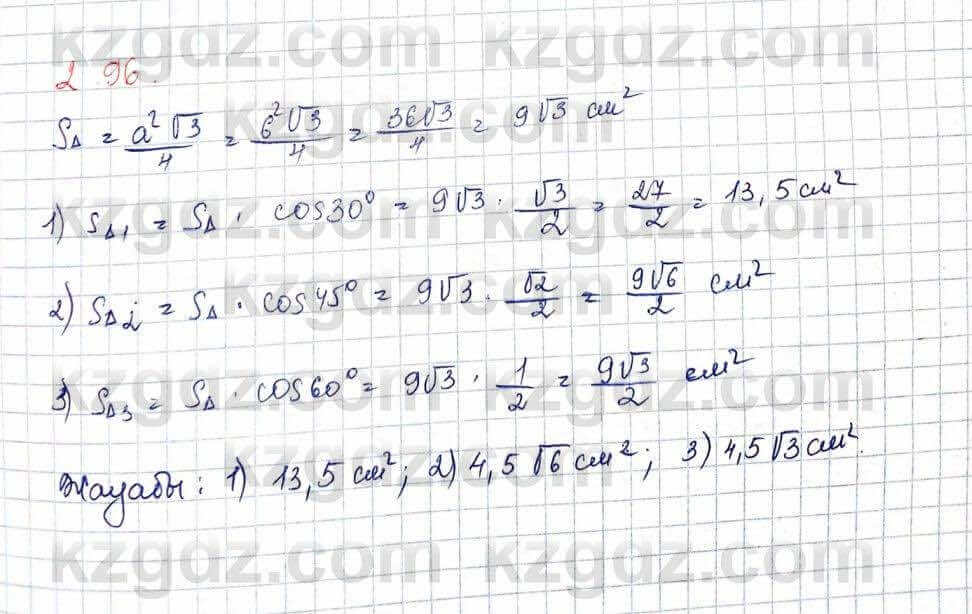 2 96.
S△ = a²√3/4 = 6²√3/4 = 36√3/4 = 9√3 см²
1) S△₁ = S△ · cos30° = 9√3 · √3/2 = 27/2 = 13,5 см²
2) S△₂ = S△ · cos45° = 9√3 · √2/2 = 9√6/2 см²
3) S△₃ = S△ · cos60° = 9√3 · 1/2 = 9√3/2 см²
Жауабы: 1) 13,5 см²; 2) 4,5√6 см²; 3) 4,5√3 см².
kzgdz.com